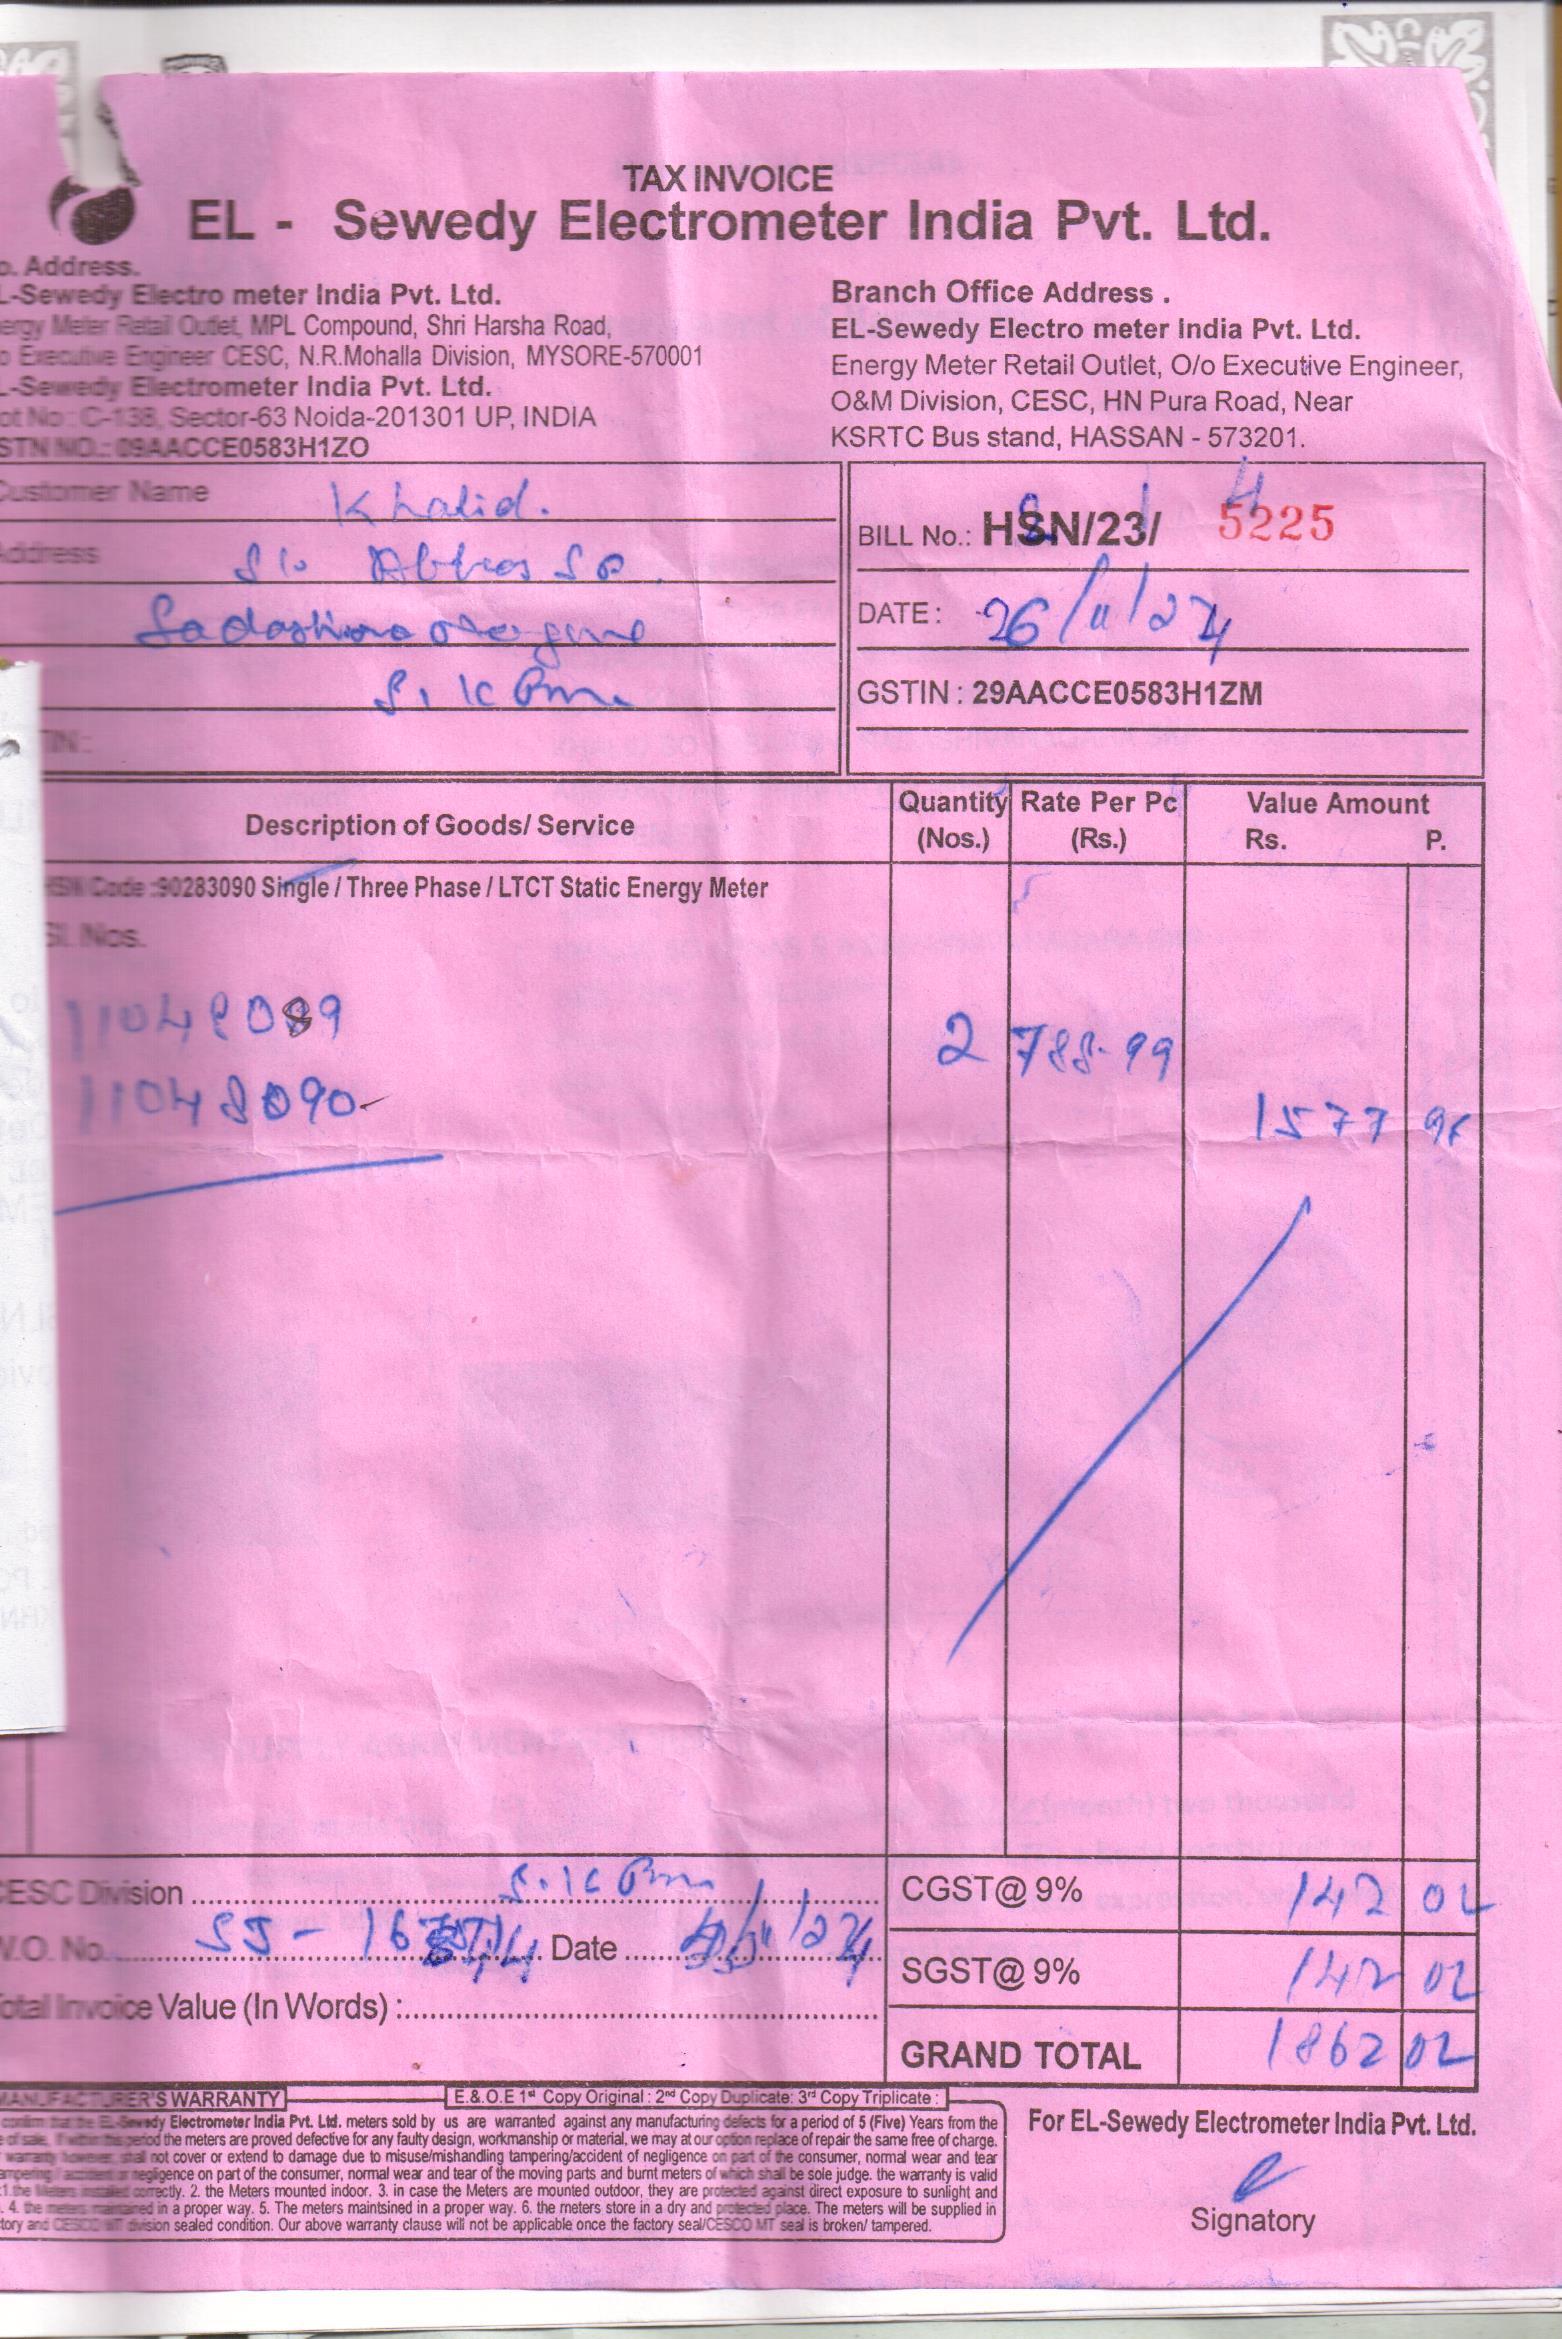 TAX INVOICE
EL - Sewedy Electrometer India Pvt. Ltd.
o. Address.
L-Sewedy Electro meter India Pvt. Ltd.
ergy Meter Retail Outlet, MPL Compound, Shri Harsha Road,
o Executive Engineer CESC, N.R.Mohalla Division, MYSORE-570001
L-Sewedy Electrometer India Pvt. Ltd.
ot No : C-138, Sector-63 Noida-201301 UP, INDIA
STN NO.: 09AACCE0583H1ZO
Branch Office Address .
EL-Sewedy Electro meter India Pvt. Ltd.
Energy Meter Retail Outlet, O/o Executive Engineer,
O&M Division, CESC, HN Pura Road, Near
KSRTC Bus stand, HASSAN - 573201.
Customer Name Khalid.
Address S/o Abbas
S. K Pura
TIN :
BILL No.: HSN/23/ 5225
DATE : 26/11/24
GSTIN : 29AACCE0583H1ZM
Description of Goods/ Service Quantity (Nos.) Rate Per Pc (Rs.) Value Amount Rs. P.
HSN Code :90283090 Single / Three Phase / LTCT Static Energy Meter
Sl. Nos.
11048089 2 788.99
11048090
1577 98
CESC Division S.K Pura CGST@ 9% 142 02
W.O. No. SJ - Date SGST@ 9% 142 02
Total Invoice Value (In Words) :
GRAND TOTAL 1862 02
MANUFACTURER'S WARRANTY E.&.O.E 1st Copy Original : 2nd Copy Duplicate: 3rd Copy Triplicate :
confirm that the EL-Sewedy Electrometer India Pvt. Ltd. meters sold by us are warranted against any manufacturing defects for a period of 5 (Five) Years from the
e of sale. If within this period the meters are proved defective for any faulty design, workmanship or material, we may at our option replace of repair the same free of charge.
warranty however, shall not cover or extend to damage due to misuse/mishandling tampering/accident of negligence on part of the consumer, normal wear and tear
ampering / accident or negligence on part of the consumer, normal wear and tear of the moving parts and burnt meters of which shall be sole judge. the warranty is valid
:1.the Meters installed correctly. 2. the Meters mounted indoor. 3. in case the Meters are mounted outdoor, they are protected against direct exposure to sunlight and
. 4. the meters maintained in a proper way. 5. The meters maintsined in a proper way. 6. the meters store in a dry and protected place. The meters will be supplied in
tory and CESCO MT division sealed condition. Our above warranty clause will not be applicable once the factory seal/CESCO MT seal is broken/ tampered.
For EL-Sewedy Electrometer India Pvt. Ltd.
Signatory